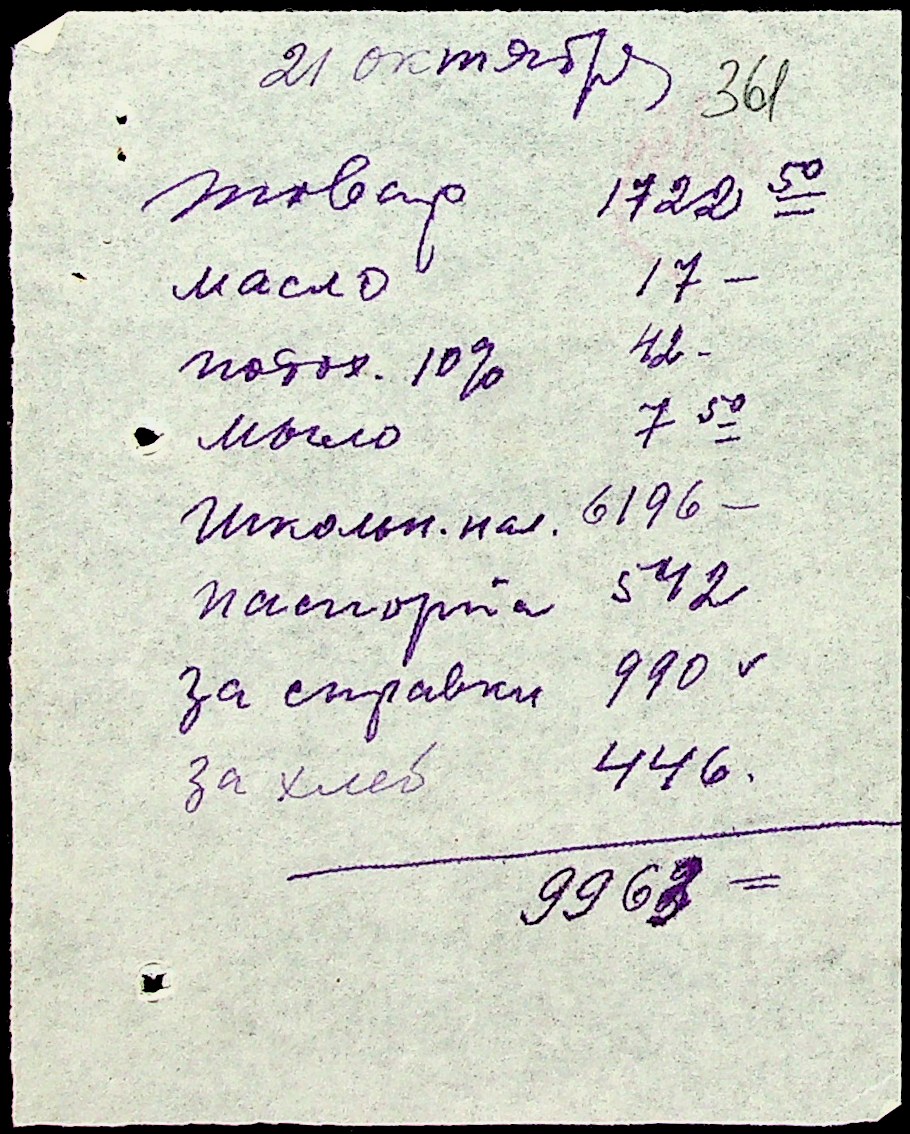 21 октября 361
товар 1722 50
масло 17 –
подох. 10% 42 –
мыло 7 50
Школьн. нал. 6196 –
паспорта 542
за справки 990 ✓
за хлеб 446.
9963 =